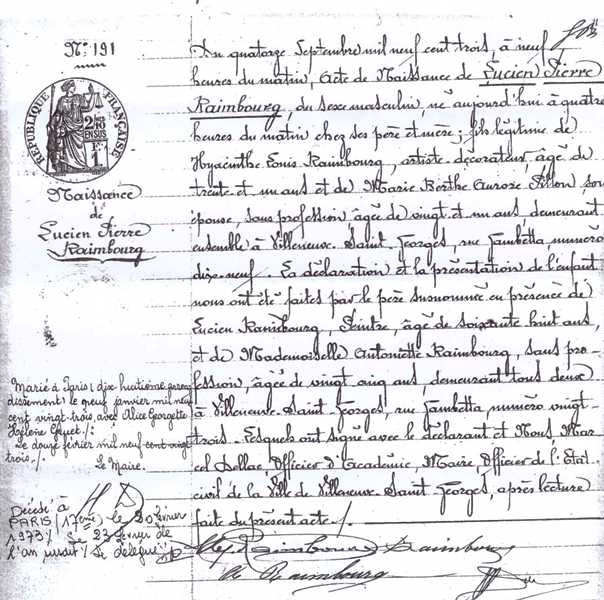 N° 191
RÉPUBLIQUE FRANÇAISE
Naissance
de
Lucien Pierre
Raimbourg
Du quatorze Septembre mil neuf cent trois, à neuf
heures du matin, Acte de Naissance de Lucien Pierre
Raimbourg, du sexe masculin, né aujourd'hui à quatre
heures du matin chez ses père et mère; fils légitime de
Hyacinthe Louis Raimbourg, artiste-décorateur, âgé de
trente et un ans et de Marie Berthe Aurore Pillon son
épouse, sans profession, âgée de vingt et un ans, demeurant
ensemble à Villeneuve-Saint-Georges, rue Gambetta, numéro
dix-neuf. La déclaration et la présentation de l'enfant
nous ont été faites par le père susnommé en présence de
Lucien Raimbourg, Peintre, âgé de soixante huit ans,
et de Mademoiselle Antoinette Raimbourg, sans pro-
fession, âgée de vingt cinq ans, demeurant tous deux
à Villeneuve-Saint-Georges, rue Gambetta, numéro vingt-
trois. Lesquels ont signé avec le déclarant et Nous, Mar-
cel Dellac, Officier d'Académie, Maire, Officier de l'État
civil de la Ville de Villeneuve-Saint-Georges, après lecture
faite du présent acte ./.
Marié à Paris (dix huitième arron
dissement) le neuf janvier mil neuf
cent vingt-trois, avec Alice Georgette
Hélène ./.
Le douze février mil neuf cent vingt
trois ./.
Le Maire.
Décédé à
PARIS (17ème) le 20 février
1973 ./. Le 23 février de
l'an susdit ./. Le délégué
Raimbourg Raimbourg
Raimbourg